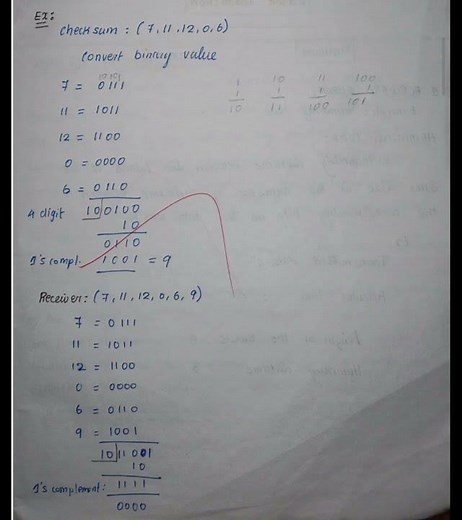 Ex:
checksum : (7, 11, 12, 0, 6)
convert binary value
10101
7 = 0111
11 = 1011
12 = 1100
0 = 0000
6 = 0110
4 digit 10 0100
10
0110
1's compl. 1001 = 9
1 10 11 100
1 1 1 1
10 11 100 101
Receiver: (7, 11, 12, 0, 6, 9)
7 = 0111
11 = 1011
12 = 1100
0 = 0000
6 = 0110
9 = 1001
10 1101
10
1's complement: 1111
0000